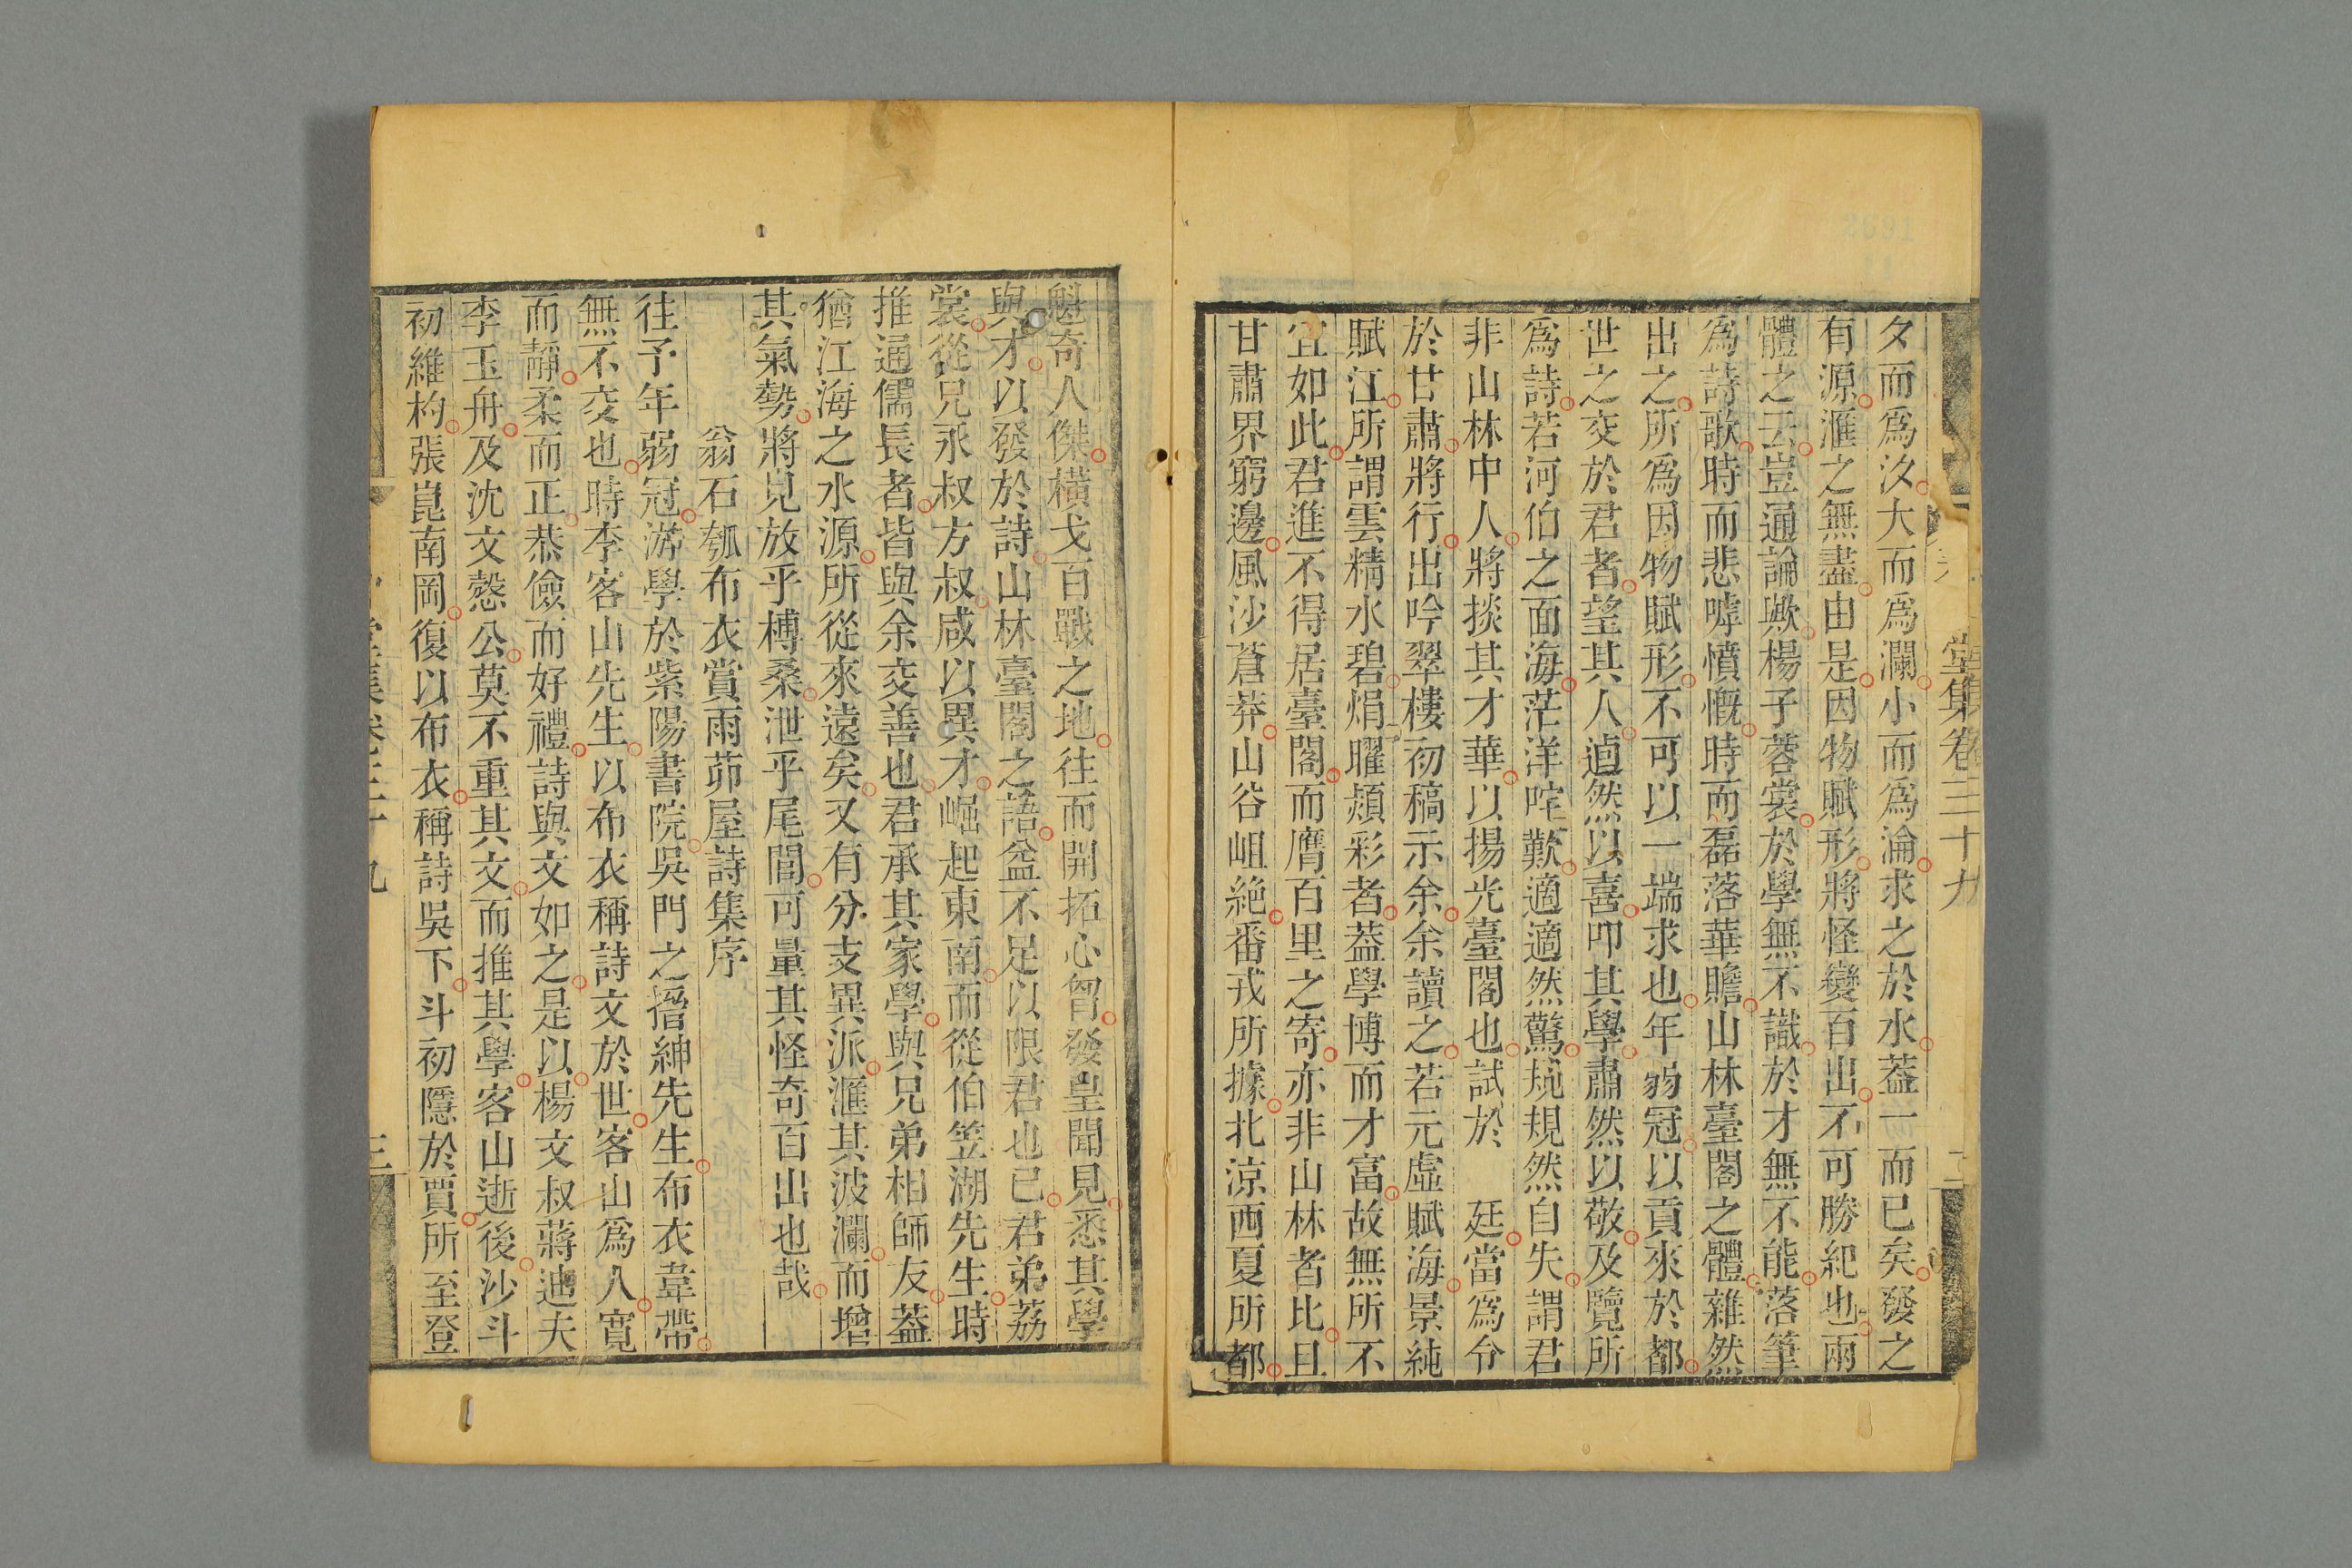 堂集卷三十九
二
夕而爲汐大而爲瀾小而爲淪求之於水葢一而已矣發之
有源滙之無盡由是因物賦形將怪變百出不可勝紀也兩
體之云豈通論歟楊子蓉裳於學無不識於才無不能落筆
爲詩歌時而悲嘑憤慨時而磊落華贍山林臺閣之體雜然
出之所爲因物賦形不可以一端求也年弱冠以貢來於都
世之交於君者望其人逌然以喜叩其學肅然以敬及覽所
爲詩若河伯之面海茫洋咤歎適適然驚規規然自失謂君
非山林中人將掞其才華以揚光臺閣也試於 廷當爲令
於甘肅將行出吟翠樓初稿示余余讀之若元虛賦海景純
賦江所謂雲精水碧焆曜熲彩者葢學博而才富故無所不
宜如此君進不得居臺閣而膺百里之寄亦非山林者比且
甘肅界窮邊風沙蒼莽山谷岨絶番戎所據北涼西夏所都
魁奇人傑橫戈百戰之地往而開拓心胷發皇聞見悉其學
與才以發於詩山林臺閣之語㿽不足以限君也已君弟荔
裳從兄永叔方叔咸以異才崛起東南而從伯笠湖先生時
推通儒長者皆與余交善也君承其家學與兄弟相師友葢
猶江海之水源所從來遠矣又有分支異派滙其波瀾而增
其氣勢將見放乎榑桑泄乎尾閭可量其怪奇百出也哉
翁石瓠布衣賞雨茆屋詩集序
往予年弱冠游學於紫陽書院吳門之搢紳先生布衣韋帶
無不交也時李客山先生以布衣稱詩文於世客山爲人寬
而靜柔而正恭儉而好禮詩與文如之是以楊文叔蔣迪夫
李玉舟及沈文慤公莫不重其文而推其學客山逝後沙斗
初維杓張崑南岡復以布衣稱詩吳下斗初隱於賈所至登
堂集卷三十九
三